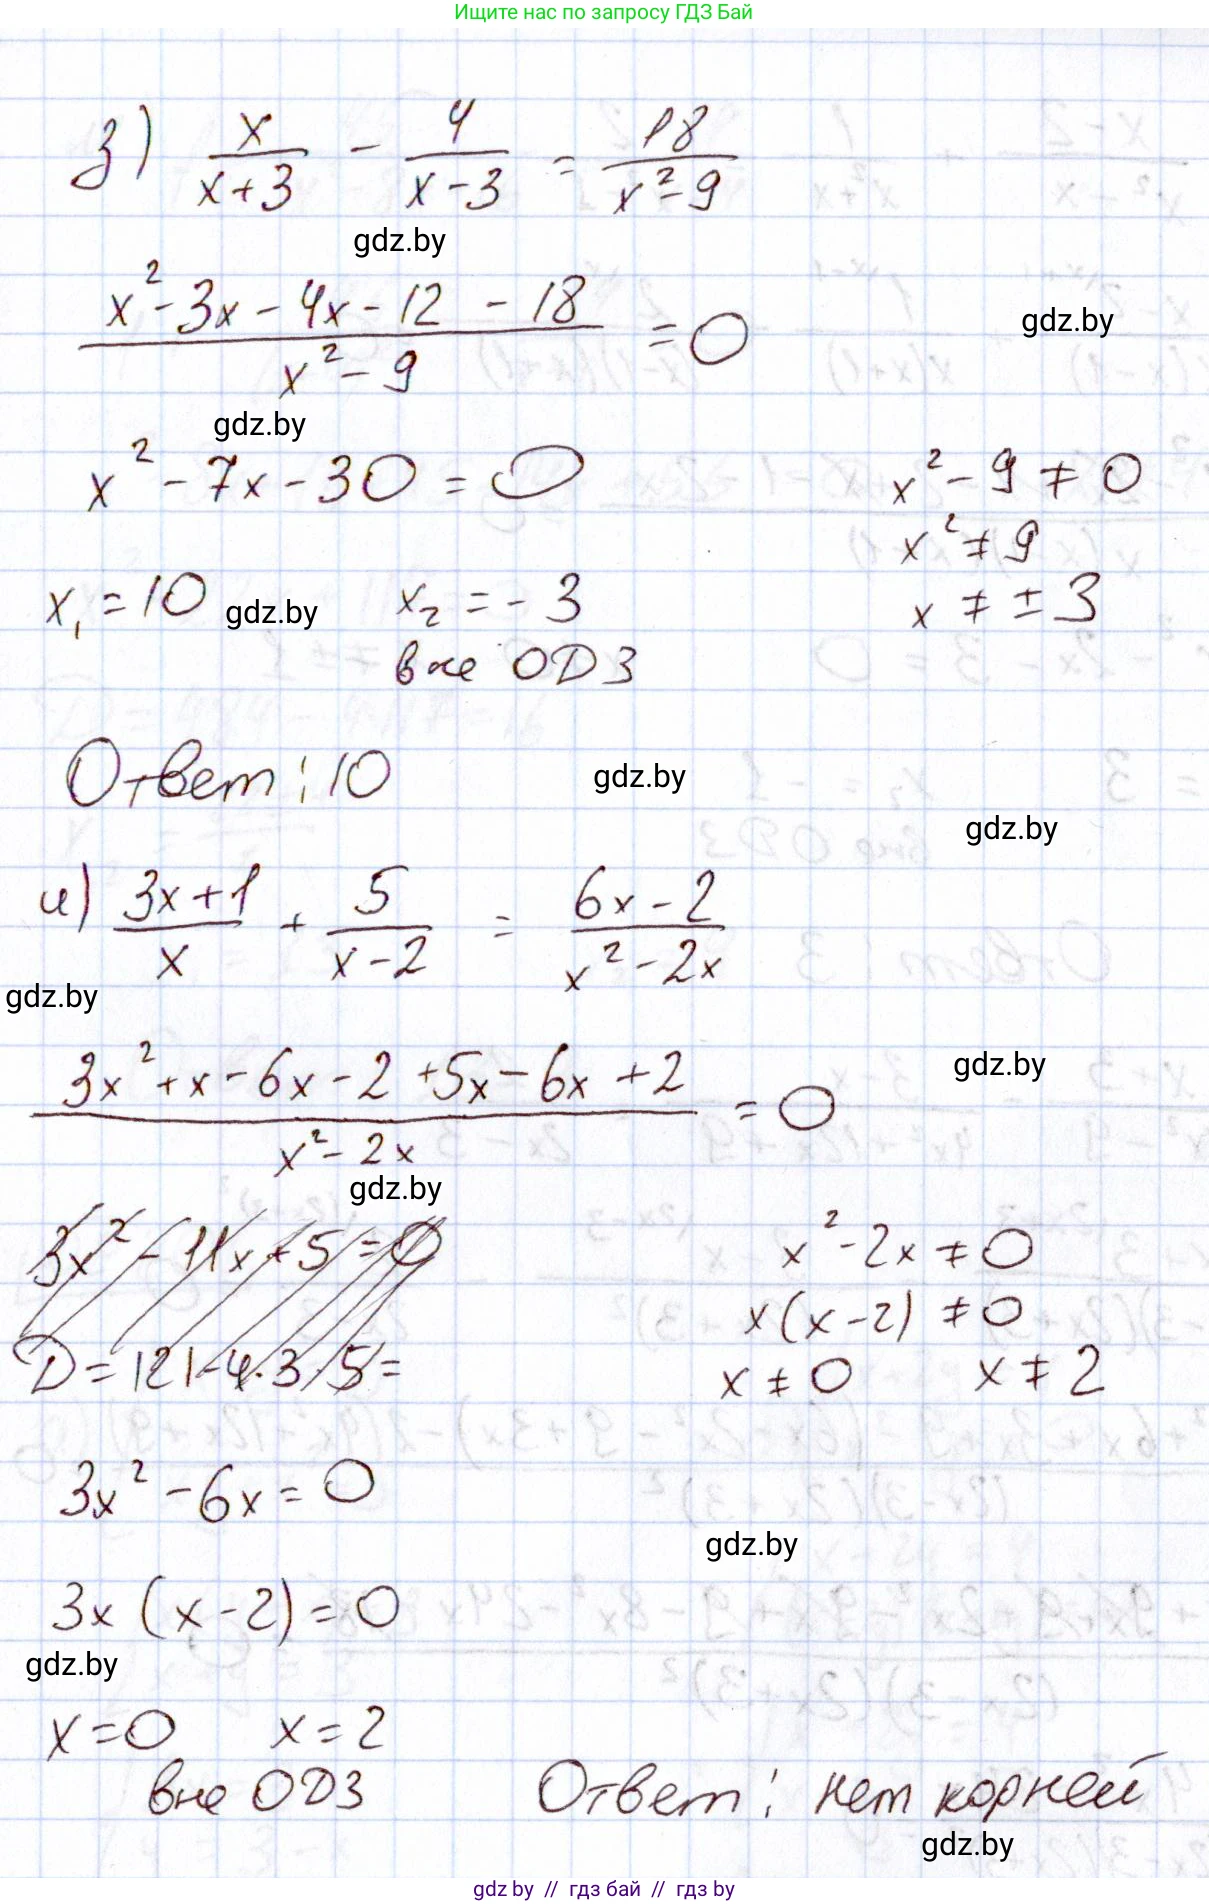 Ищите нас по запросу ГДЗ Бай
з) x/(x+3) - 4/(x-3) = 18/(x²-9)
gdz.by
(x²-3x-4x-12-18)/(x²-9) = 0
gdz.by
gdz.by
x²-7x-30=0
x²-9≠0
x²≠9
x₁=10 gdz.by x₂=-3
x≠±3
вне ОДЗ
Ответ: 10
gdz.by
gdz.by
и) (3x+1)/x + 5/(x-2) = (6x-2)/(x²-2x)
gdz.by
(3x²+x-6x-2+5x-6x+2)/(x²-2x) = 0
gdz.by
gdz.by
3x²-11x+5=0
x²-2x≠0
x(x-2)≠0
D=121-4·3·5=
x≠0 x≠2
3x²-6x=0
gdz.by
3x(x-2)=0
gdz.by
x=0 x=2
вне ОДЗ
Ответ: нет корней
gdz.by
gdz by // гдз бай // гдз by